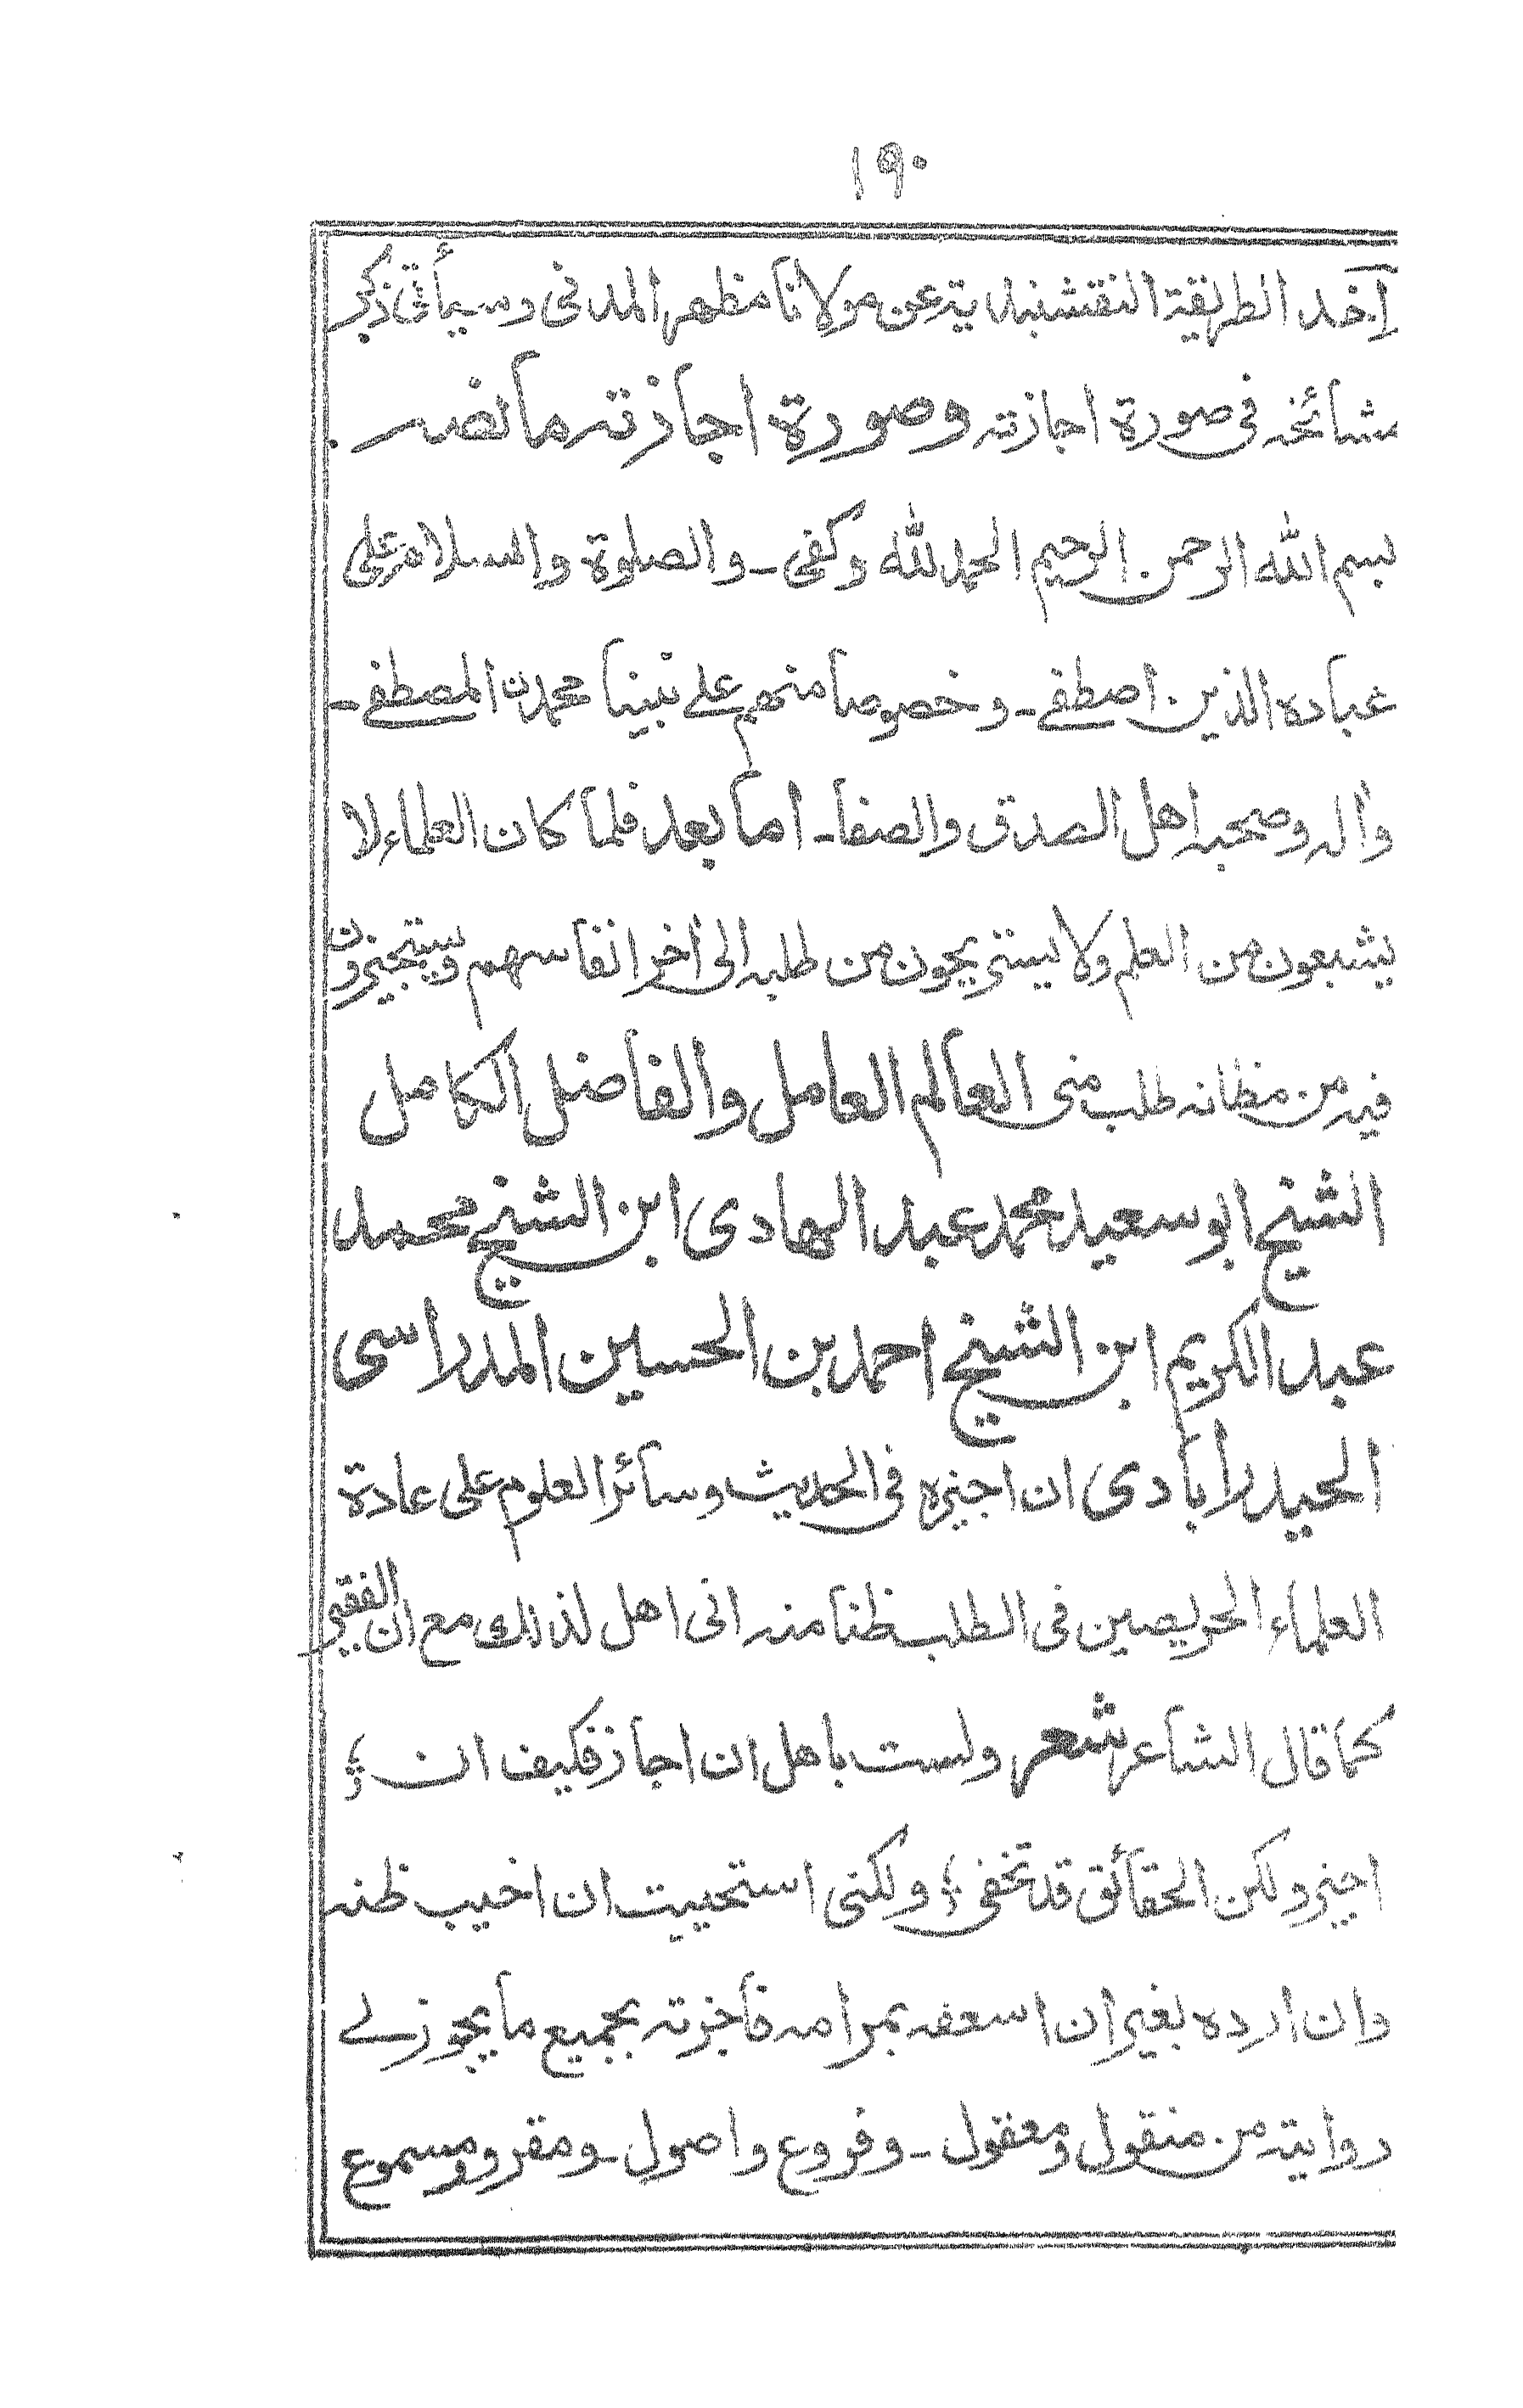 ١٩٠
اخذ الطريقة النقشبندية عن مولانا مظهر المدنى وسيأتى ذكر
مشائخه فى صورة اجازته وصورة اجازته ما نصه
بسم الله الرحمن الرحيم الحمد لله وكفى ـ والصلوة والسلام على
عباده الذين اصطفى ـ وخصوصا منهم على نبينا محمدن المصطفى ـ
واله وصحبه اهل الصدق والصفا ـ اما بعد فلما كان العلماء لا
يشبعون من العلم ولا يستريحون من طلبه الى اخر انفاسهم ويستجيزون
فيه من مظانه طلب منى العالم العامل والفاضل الكامل
الشيخ ابو سعيد محمد عبد الهادى ابن الشيخ محمد
عبد الكريم ابن الشيخ احمد بن الحسين المدراسى
الحيدرابادى ان اجيزه فى الحديث وسائر العلوم على عادة
العلماء الحريصين فى الطلب ظنا منه انى اهل لذالك مع ان الفقير
كما قال الشاعر شعر ولست باهل ان اجاز فكيف ان ؛
اجيز ولكن الحقائق قد تخفى ؛ ولكنى استحييت ان اخيب ظنه
وان ارده بغير ان اسعفه بمرامه فاجزته بجميع ما يجوز لے
روايته من منقول ومعقول ـ وفروع واصول ـ ومقرو ومسموع